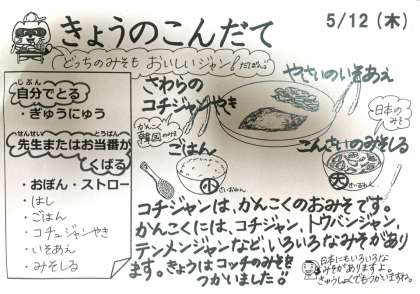 きょうのこんだて
5/12 (木)
どっちのみそも おいしいジャン!だぽん
じぶん
自分でとる
・ぎゅうにゅう
せんせい とうばん
先生またはお当番が
くばる
・おぼん・ストロー
・はし
・ごはん
・コチュジャンやき
・いそあえ
・みそしる
さわらの
コチジャンやき
やさいのいそあえ
かんこく
韓国のみそ
ごはん
小
さいおめん
日本の
みそ
こんさいのみそしる
大
さいおめん
コチジャンは、かんこくのおみそです。
かんこくには、コチジャン、トウバンジャン、
テンメンジャンなど、いろいろなみそがあり
ます。きょうはコッチのみそを
つかいました!!
日本にもいろいろな
みそがありますよ。
きゅうしょくでもつかいますね。